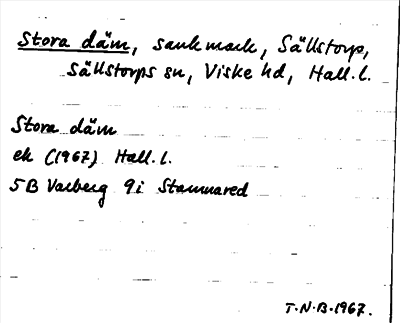 Stora däm, sankmark, Sällstorp,
Sällstorps sn, Viske hd, Hall. l.
Stora däm
ek (1967) Hall. l.
5B Varberg 9i Stamnared
T.N.B. 1967.